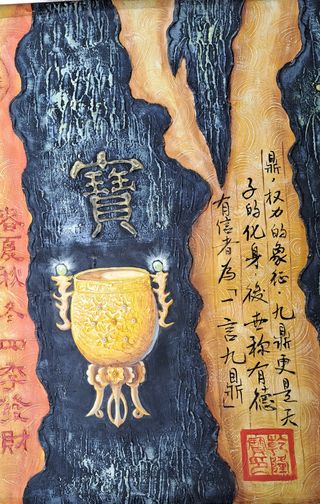 鼎，权力的象征，九鼎更是天
子的化身，後世称有德
有信者为「一言九鼎」
寶
春夏秋冬四季發財
乾隆
寶